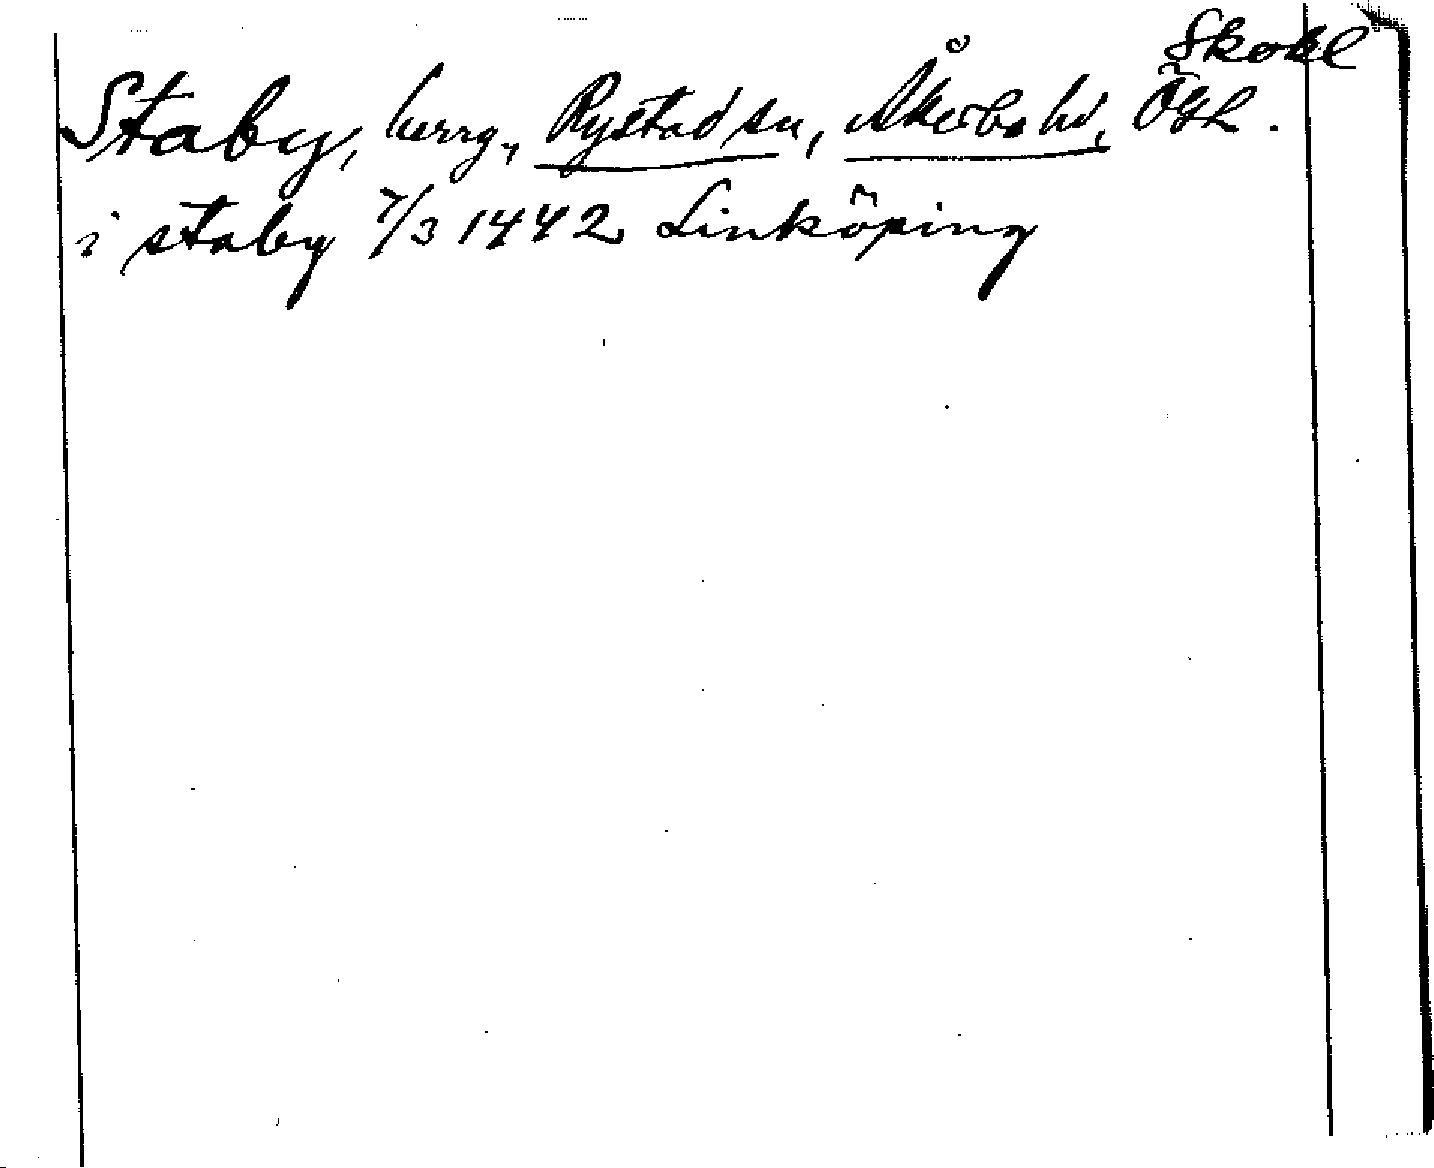 SkoKl
Staby, herrg., Rystad sn, Åkerbo hd, Ögl.
i staby 7/3 1442 Linköping